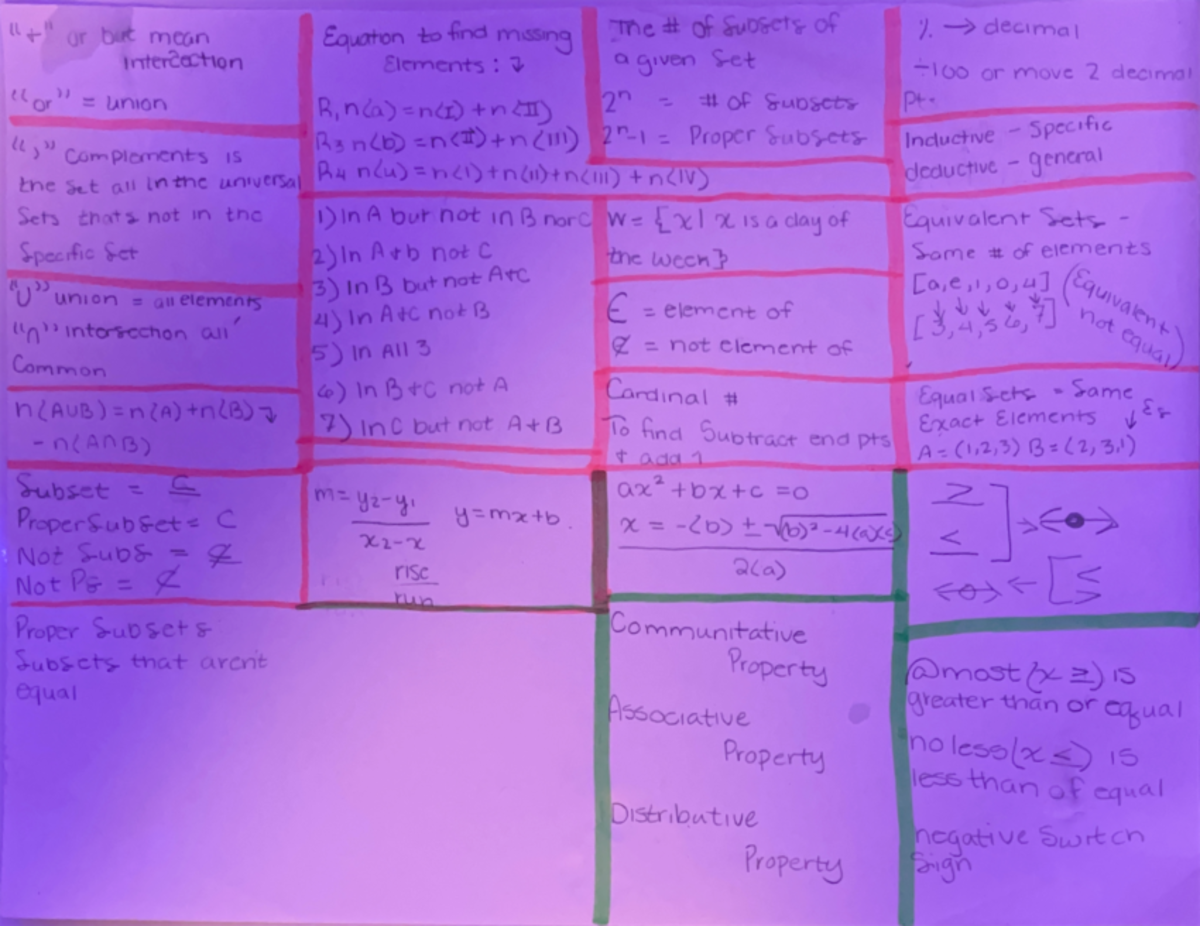 "+" or but mean
Intersection
"or" = union
"," Complements is
the set all in the universal
Sets thats not in the
Specific Set
"U" union = all elements
"∩" intersection all
Common
n(A∪B) = n(A)+n(B) ↴
- n(A∩B)
Subset = ⊆
Proper Subset = ⊂
Not Subs = ⊈
Not Ps = ⊄
Proper Subsets
Subsets that arent
equal
Equaton to find missing
Elements: ↴
R, n(a) = n(I) + n(II)
R3 n(b) = n(II) + n(III)
R4 n(u) = n(I) + n(II) + n(III) + n(IV)
1) In A but not in B nor C
2) In A + b not C
3) In B but not A+C
4) In A+C not B
5) In All 3
6) In B+C not A
7) In C but not A+B
m = y₂-y₁
x₂-x
y=mx+b.
rise
run
The # of Subsets of
a given Set
2ⁿ = # of Subsets
2ⁿ-1 = Proper Subsets
W = {x | x is a day of
the week}
∈ = element of
∉ = not element of
Cardinal #
To find Subtract end pts
+ add 1
ax² + bx + c = 0
x = -(b) ± √(b)²-4(a)(c)
2(a)
Communitative
Property
Associative
Property
Distributive
Property
% → decimal
÷100 or move 2 decimal
Pt.
Inductive - Specific
deductive - general
Equivalent Sets -
Same # of elements
[a, e, 1, 0, 4] (Equivalent
↓ ↓ ↓ ↓ ↓
[3, 4, 5, 6, 7] not equal)
Equal Sets = Same
Exact Elements ↓
A = (1,2,3) B = (2,3,1)
≥
≤ ] → <-●->
<-o-> ← [ ≤
@most (x ≥) is
greater than or equal
no less (x ≤) is
less than of equal
negative Switch
Sign